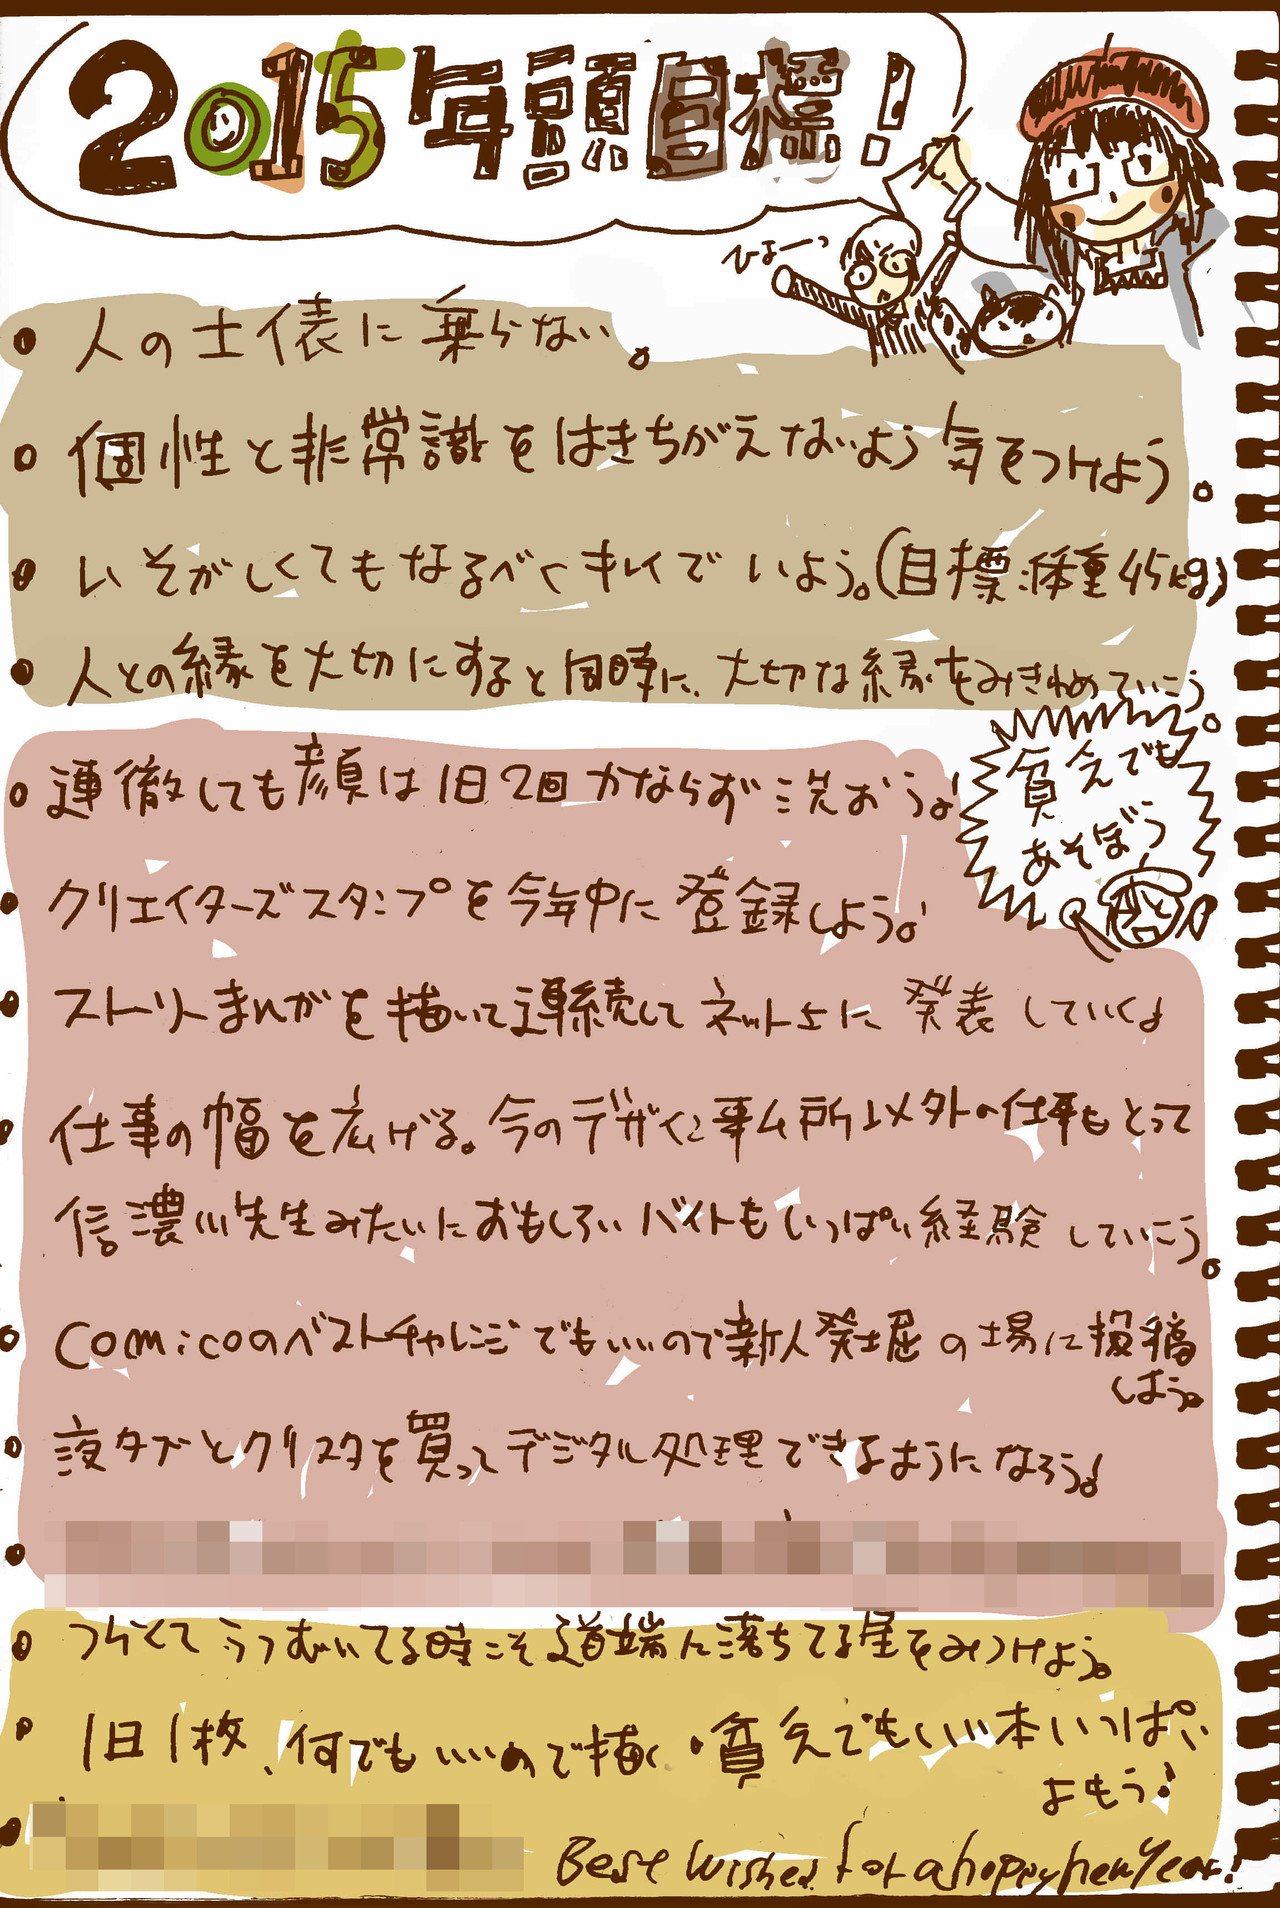 2015年頭目標!
ひょーっ
人の土俵に乗らない。
個性と非常識をはきちがえないよう気をつけよう。
いそがしくてもなるべくキレイでいよう。(目標:体重45kg)
人との縁を大切にすると同時に、大切な縁をみきわめていこう。
貧乏でも
あそぼう
連徹しても顔は1日2回かならず洗おうよ!
クリエイターズスタンプを今年中に登録しよう!
ストーリーまんがを描いて連続してネット上に発表していくよ
仕事の幅を広げる。今のデザイン事ム所以外の仕事もとって
信濃川先生みたいにおもしろいバイトもいっぱい経験していこう。
comicoのベストチャレンジでもいいので新人発掘の場に投稿
しよう。
液タブとクリスタを買ってデジタル処理できるようになろう!
つらくてうつむいてる時こそ道端に落ちてる星をみつけよう。
1日1枚、何でもいいので描く・貧乏でもいい本いっぱい
よもう!
Best wishes for a happy new Year!